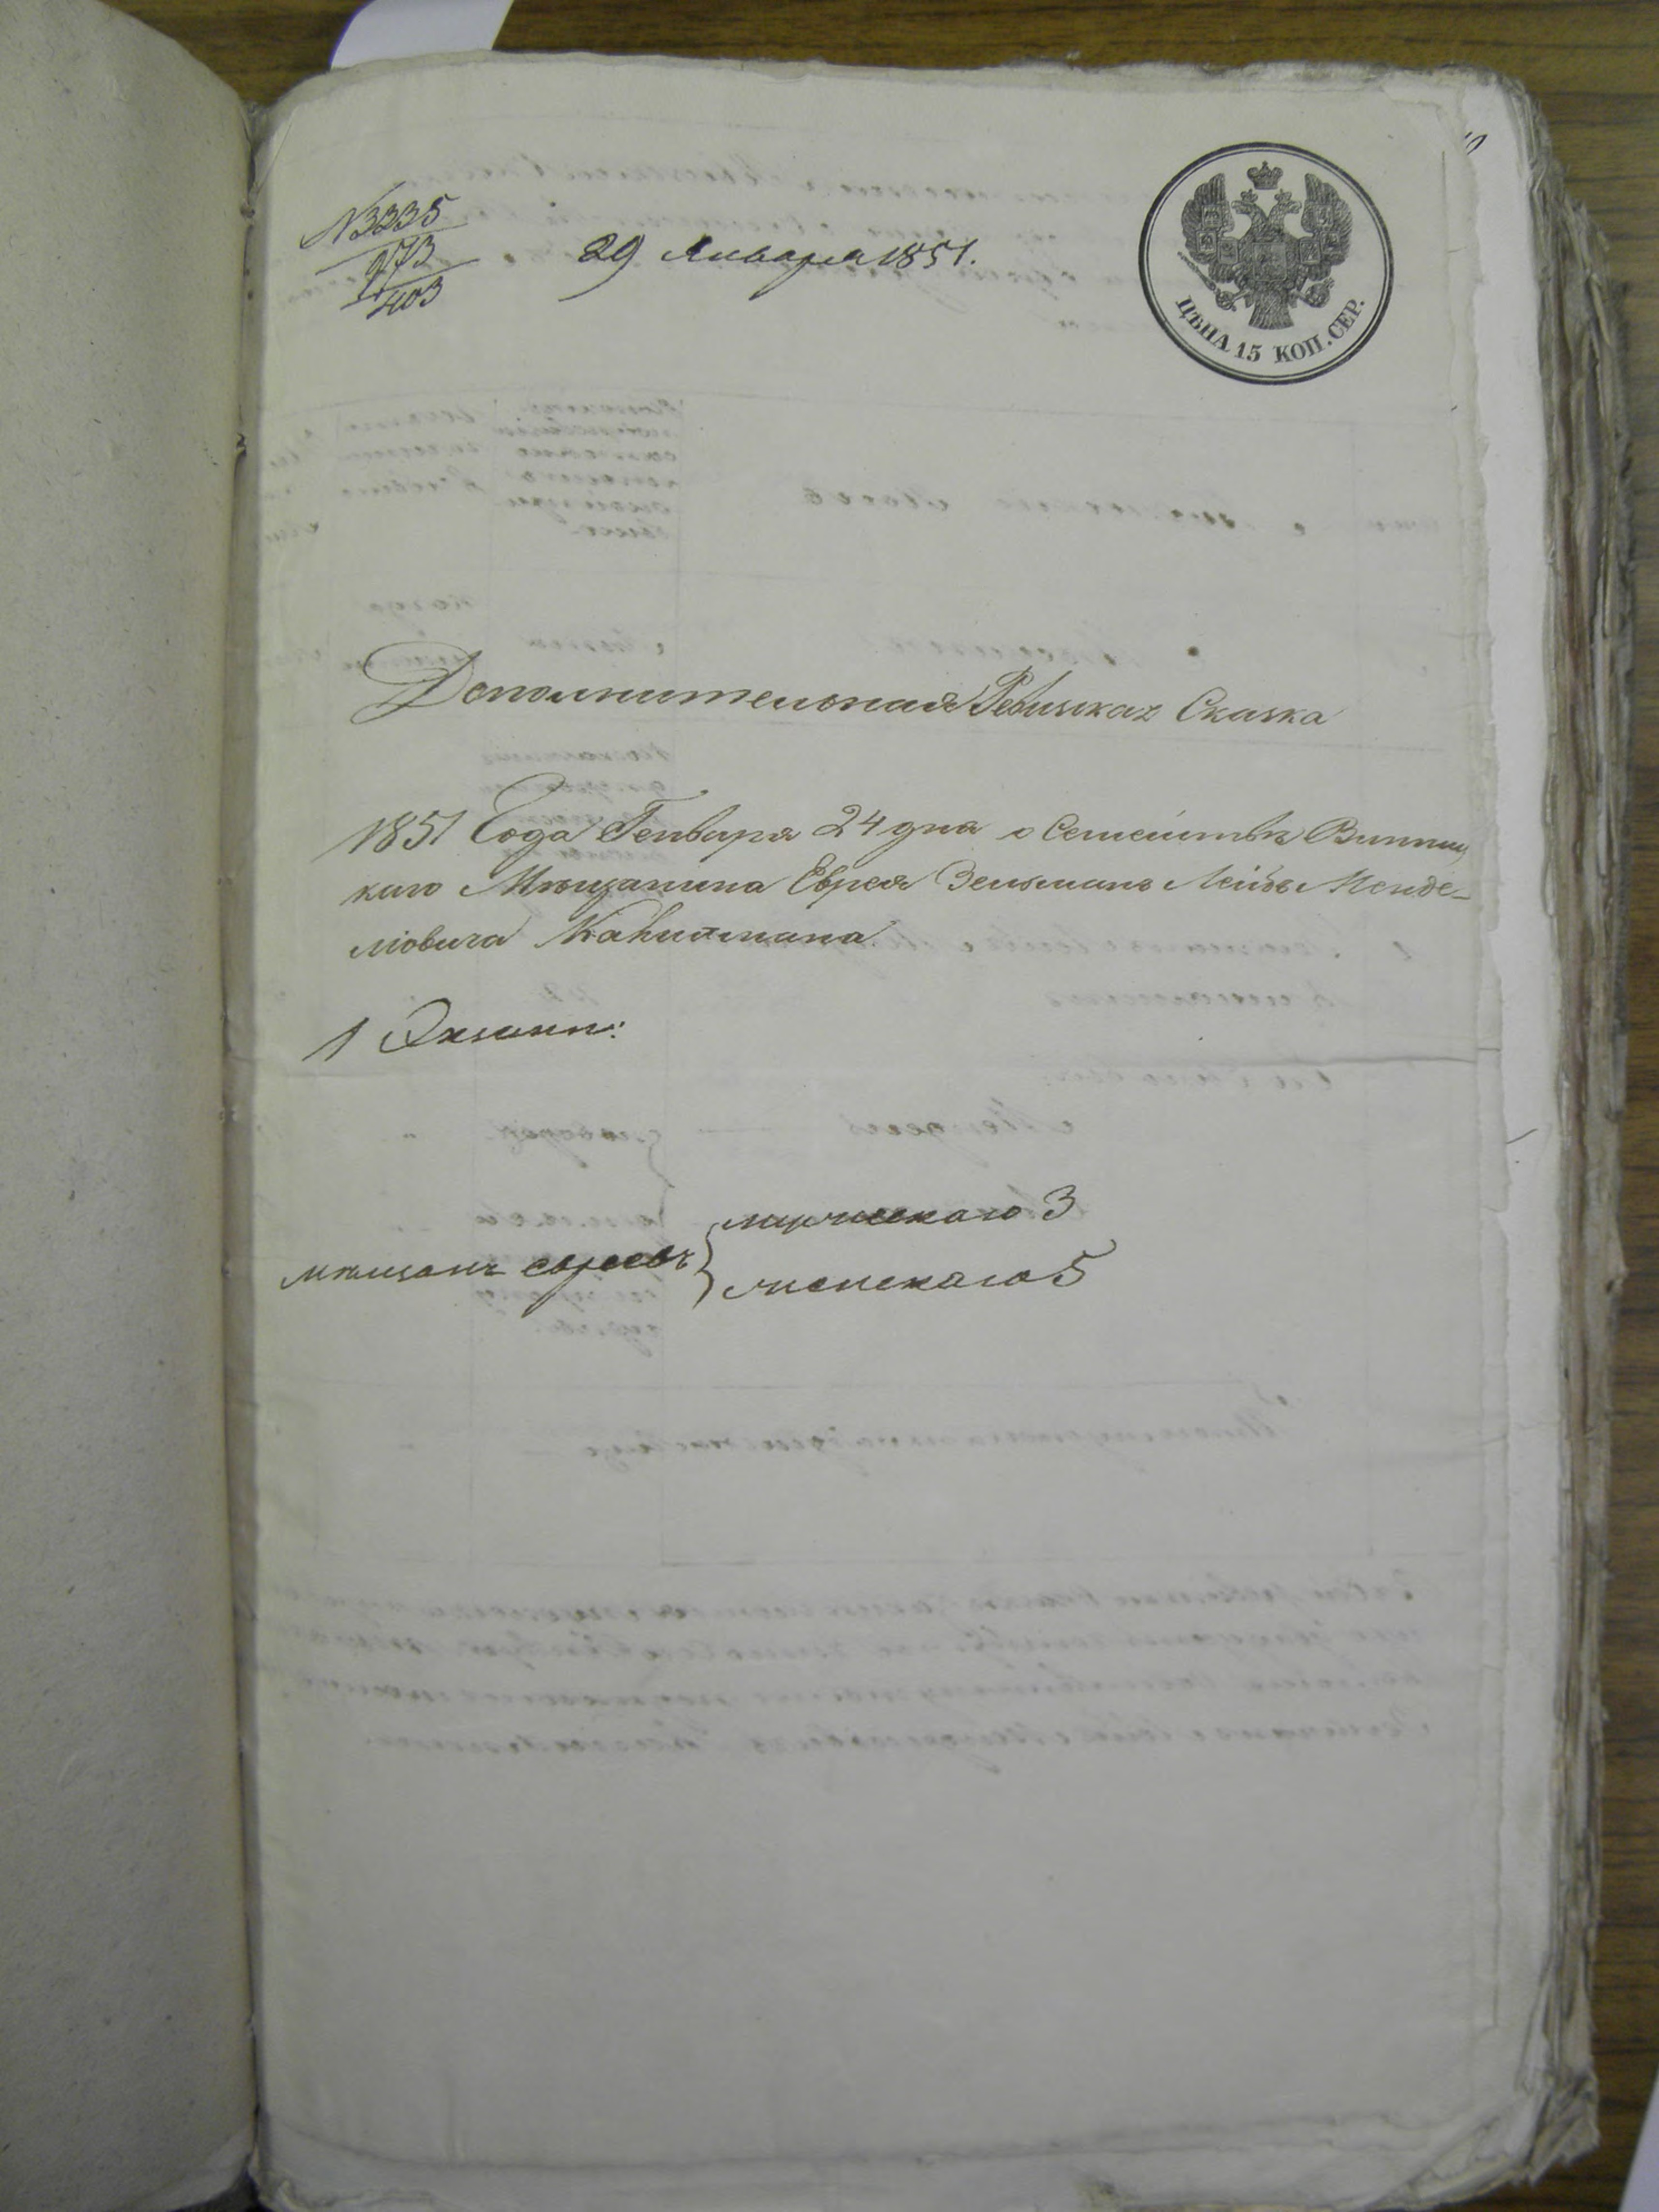 N3335
973
403
29 Января 1851.
ЦѢНА 15 КОП. СЕР.
Дополнительная Ревизская Сказка
1851 Года Генваря 24 дня о Семействѣ Винниц
каго Мѣщанина Еврея Зельманъ Лейбы Менде-
лiовича
1 Экземп:
мѣщанъ евреевъ
мужескаго 3
женскаго 5